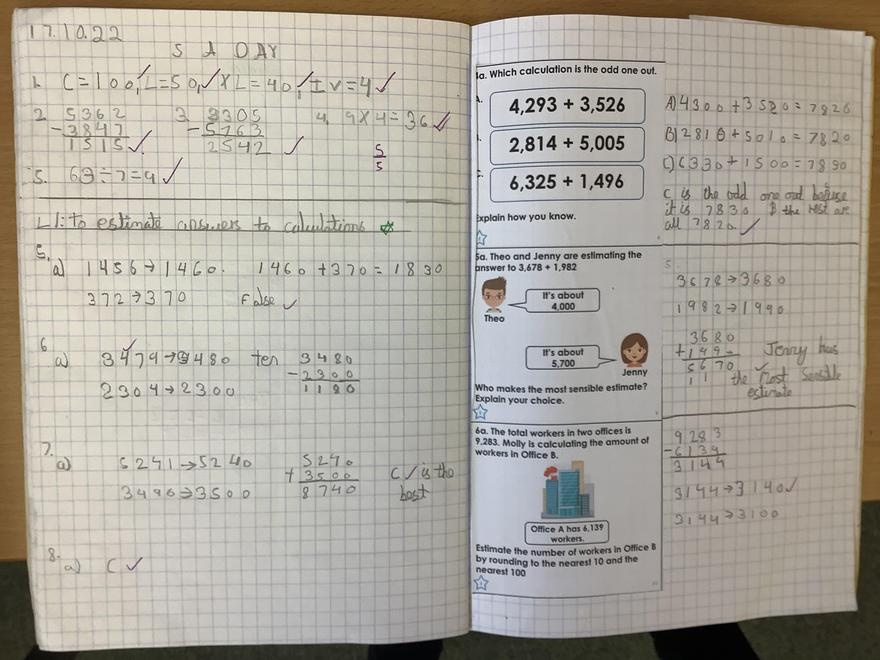 17.10.22
5 A DAY
1. C=100, L=50, XL=40, IV=4
2. 5362 3 8305 4. 9x4=36
-3847 -5763
1515 2542
5
5
5. 63÷7=9
LI: to estimate answers to calculations
5.
a) 1456→1460. 1460+370=1830
372→370 False
6
a) 3479→3480 ten 3480
-2300
2304→2300 1180
7.
a) 5241→5240 5240
+3500 C is the
3496→3500 8740 best
8.
a) C
4a. Which calculation is the odd one out.
4,293 + 3,526
2,814 + 5,005
6,325 + 1,496
Explain how you know.
A) 4300+3520=7820
B) 2810+5010=7820
C) 6330+1500=7830
C is the odd one out because
it is 7830 & the rest are
all 7820.
5a. Theo and Jenny are estimating the
answer to 3,678 + 1,982
It's about
4,000
Theo
It's about
5,700
Jenny
Who makes the most sensible estimate?
Explain your choice.
5
3678→3680
1982→1990
3680
+199
5670 Jenny has
1 1 the most sensible
estimate
6a. The total workers in two offices is
9,283. Molly is calculating the amount of
workers in Office B.
Office A has 6,139
workers.
Estimate the number of workers in Office B
by rounding to the nearest 10 and the
nearest 100
9283
-6139
3144
3144→3140
3144→3100